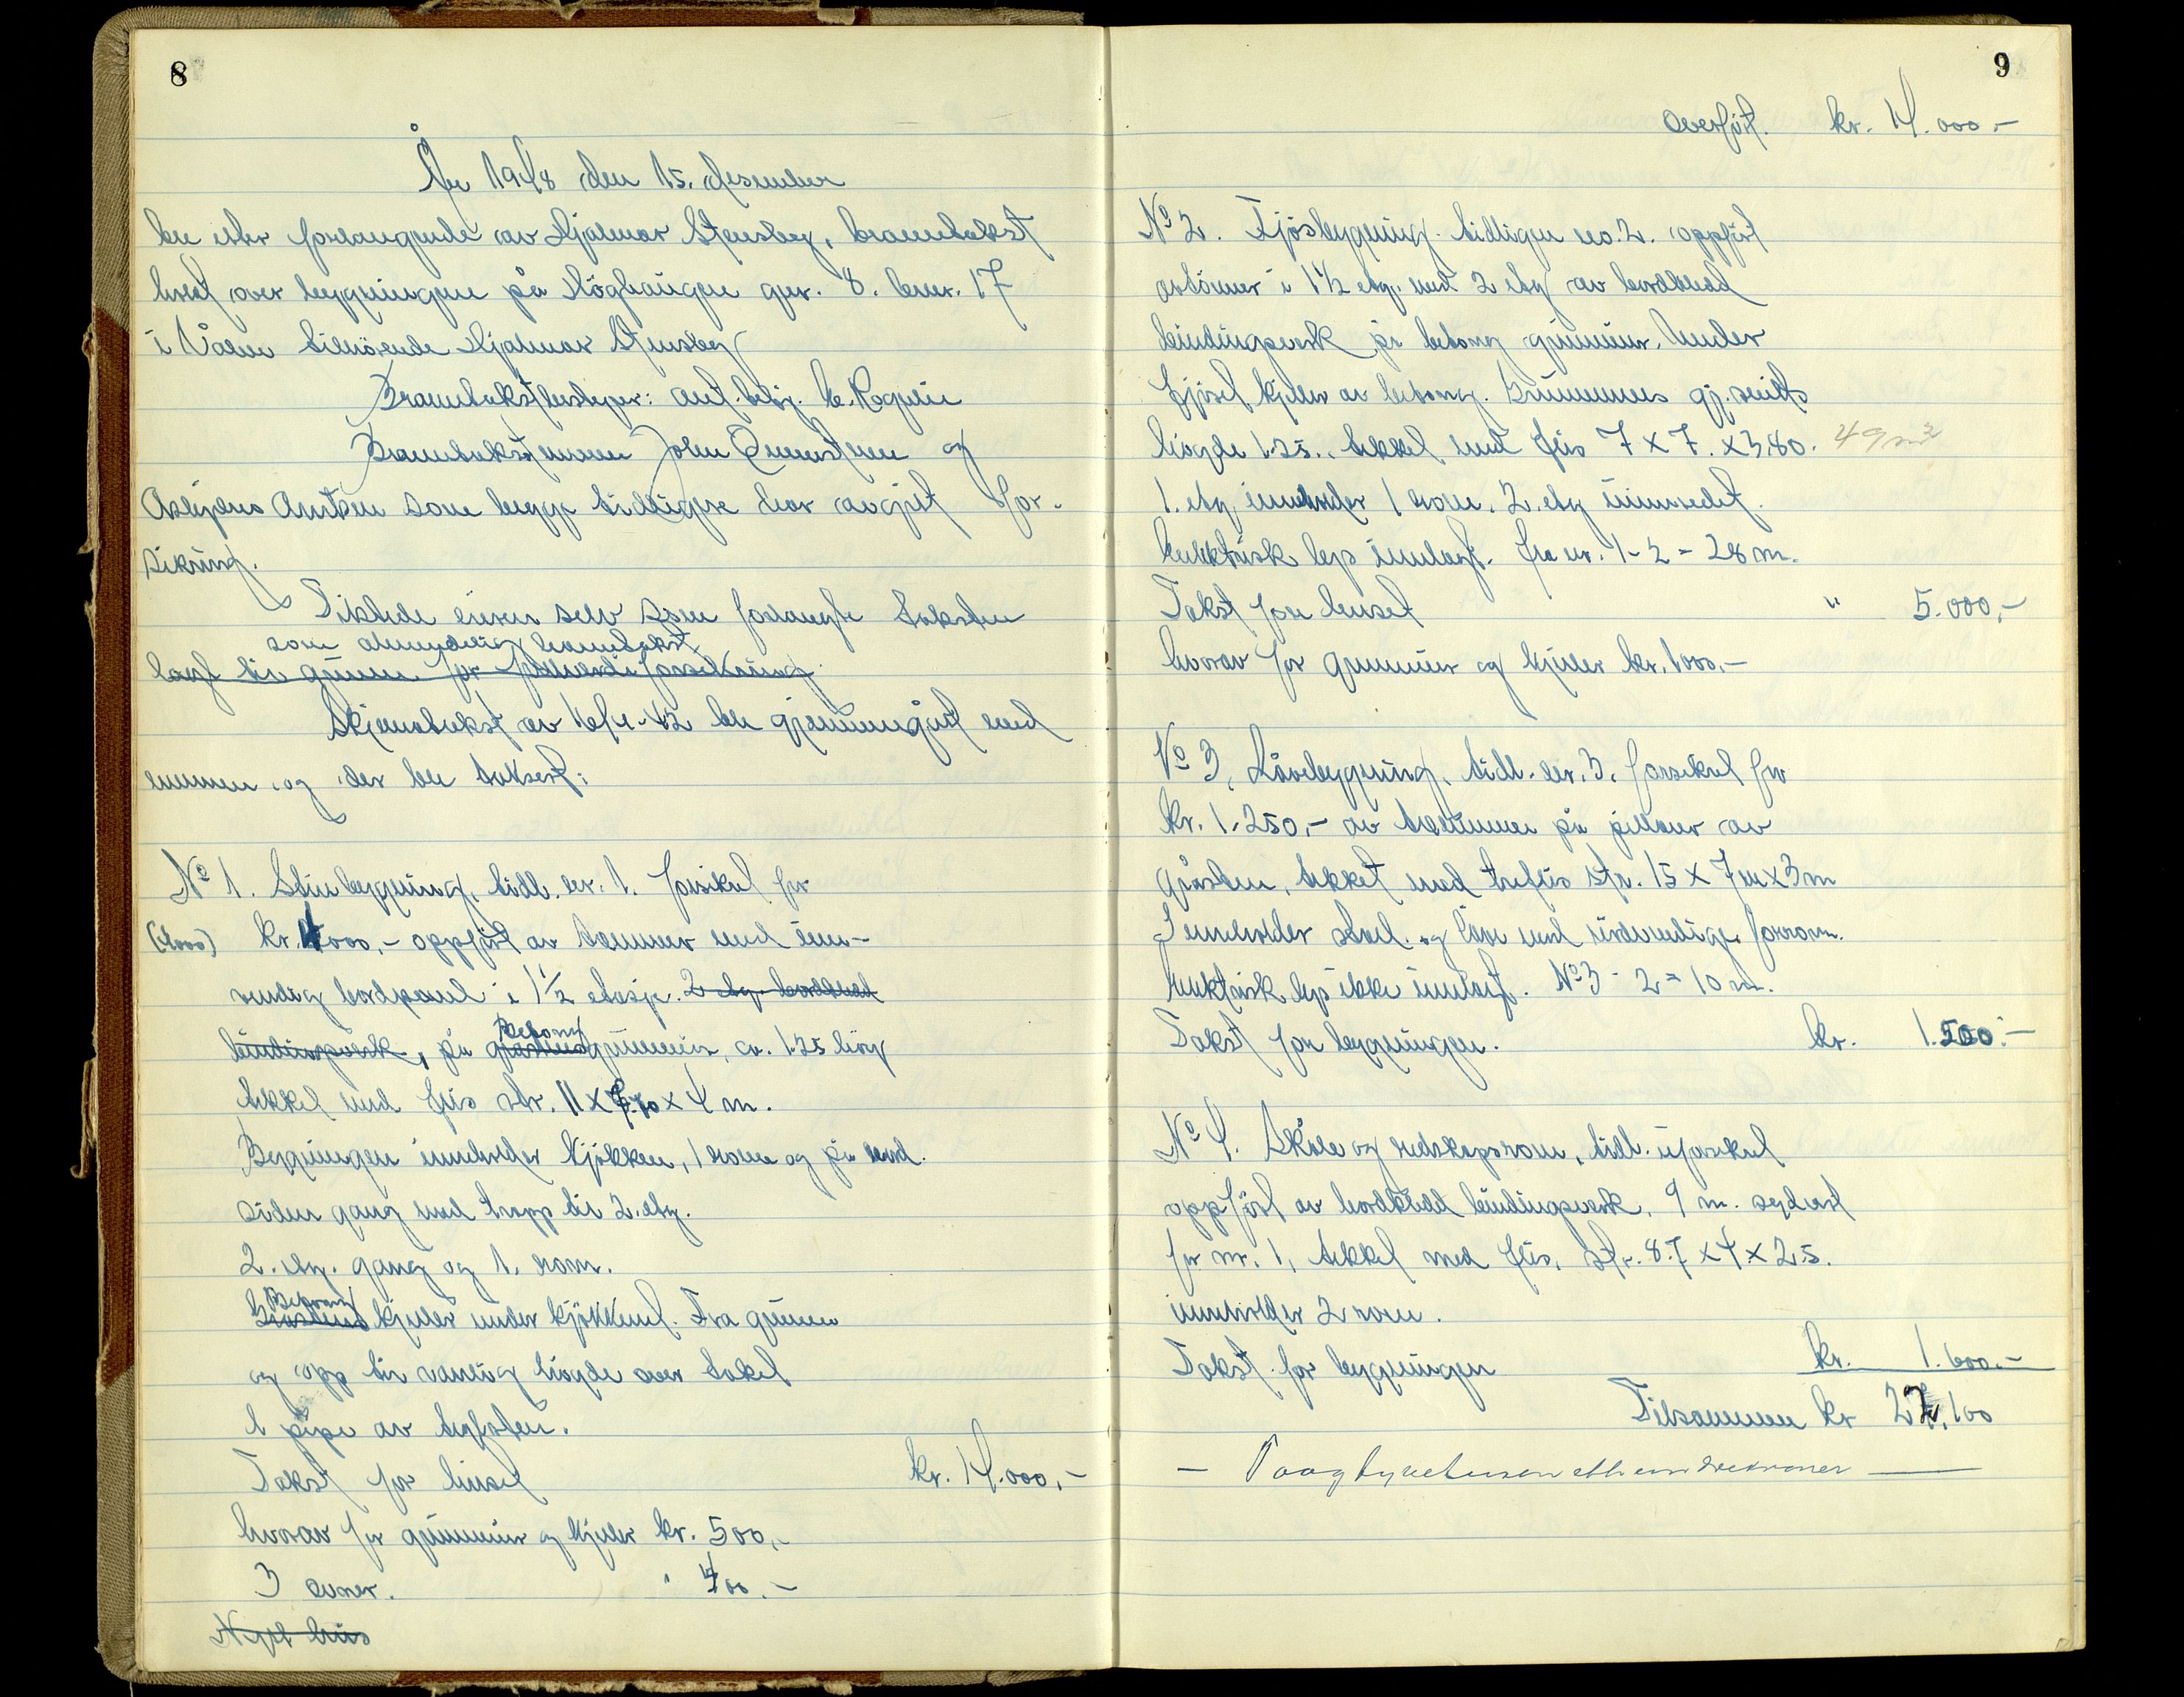 8
År 1948 den 15. desember
ble etter forlangende av Hjalmar Stensberg, branntakst
holdt over bygningene på Höghaugen gnr. 8. bnr. 17
i Våler tilhörende Hjalmar Stensberg
Branntakstbestyrer:
Branntakstmenn John og
som begge tidligere har avgitt for-
sikring.
Tilstede eieren selv som forlangte taksten
som almindelig branntakst
lagt til grunn for forsikring
Skjønstakst av ble gjennomgått med
mennene og der ble taksert:
No 1. Stuebygning, tidl. nr. 1. forsikret for
(4000) kr. 4000,- oppfört av tømmer med inn-
vendig bordpanel i 1 1/2 etasje. 2 etg. bordkledd
bindingsverk, på Betong gråstensgrunnmur, ca. 1.25 höy
tekket med flis str. 11 x 7.70 x 4 m.
Bygningen inneholder kjökken, 1 rom og på nord-
siden gang med trapp til 2. etg.
2. etg. gang og 1. rom.
Betong
Gråstens kjeller under kjökkenet. Fra grunnen
og opp til vanlig höyde over taket
1 pipe av teglsten.
Takst for huset kr. 14.000,-
hvorav for grunnmur og kjeller kr. 500,-
3 ovner. " 400.-
Nytt hus
9
Overfört. kr. 14.000,-
No 2. Fjösbygning. tidligere no. 2. oppfört
av tömmer i 1 1/2 etg. med 2 etg av bordkledd
bindingsverk på betong grunnmur. Under
fjöset kjeller av betong. Grunnmurens gj.snitts
höyde 1.25., tekket med flis 7 x 7. x 3.80. 49 m2
1. etg. inneholder 1 rom. 2. etg uinnredet.
Elektrisk lys innlagt. fra nr. 1-2 = 28 m.
Takst for huset " 5.000,-
hvorav for grunnmur og kjeller kr. 1000,-
No 3. Låvebygning, tidl. nr. 3. forsikret for
kr. 1.250,- av tømmer på pillarer av
gråsten, tekket med treflis str. 15 x 7 m x 3 m
Inneholder stall og låve med nödvendige forrom.
Elektrisk lys ikke innlagt. No 3 - 2 = 10 m.
Takst for bygningen. kr. 1.500.-
No 4. Skåle og redskapsrom, tidl. uforsikret
oppfört av bordkledd bindingsverk, 9 m. sydvest
for nr. 1, tekket med flis, str. 8.7 x 4 x 2.5.
inneholder 2 rom.
Takst for bygningen kr. 1.600.-
Tilsammen kr 22.100
- Toogtyvetusenetthundrekroner -